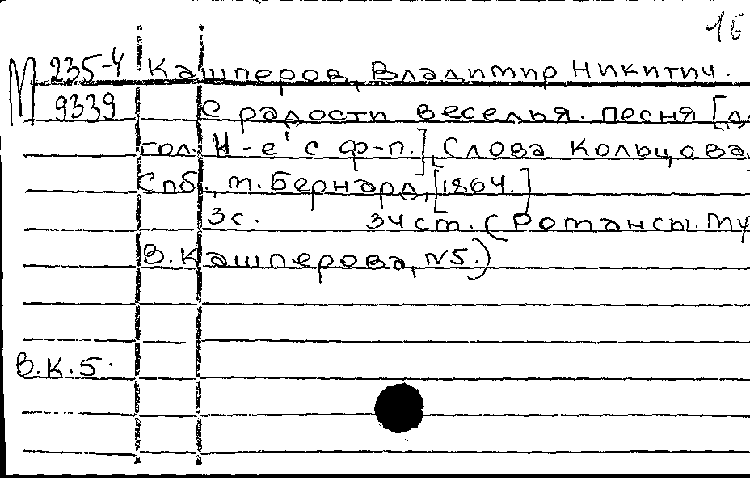 16
М 235-4 Кашперов, Владимир Никитич.
9339 С радости веселья. Песня [д
гол. Н-е' с ф-п.], Слова Кольцова
Спб., М. Бернард, [1864.]
3с. 34ст. (Романсы му
В. Кашперова, N5.)
В.К.5.